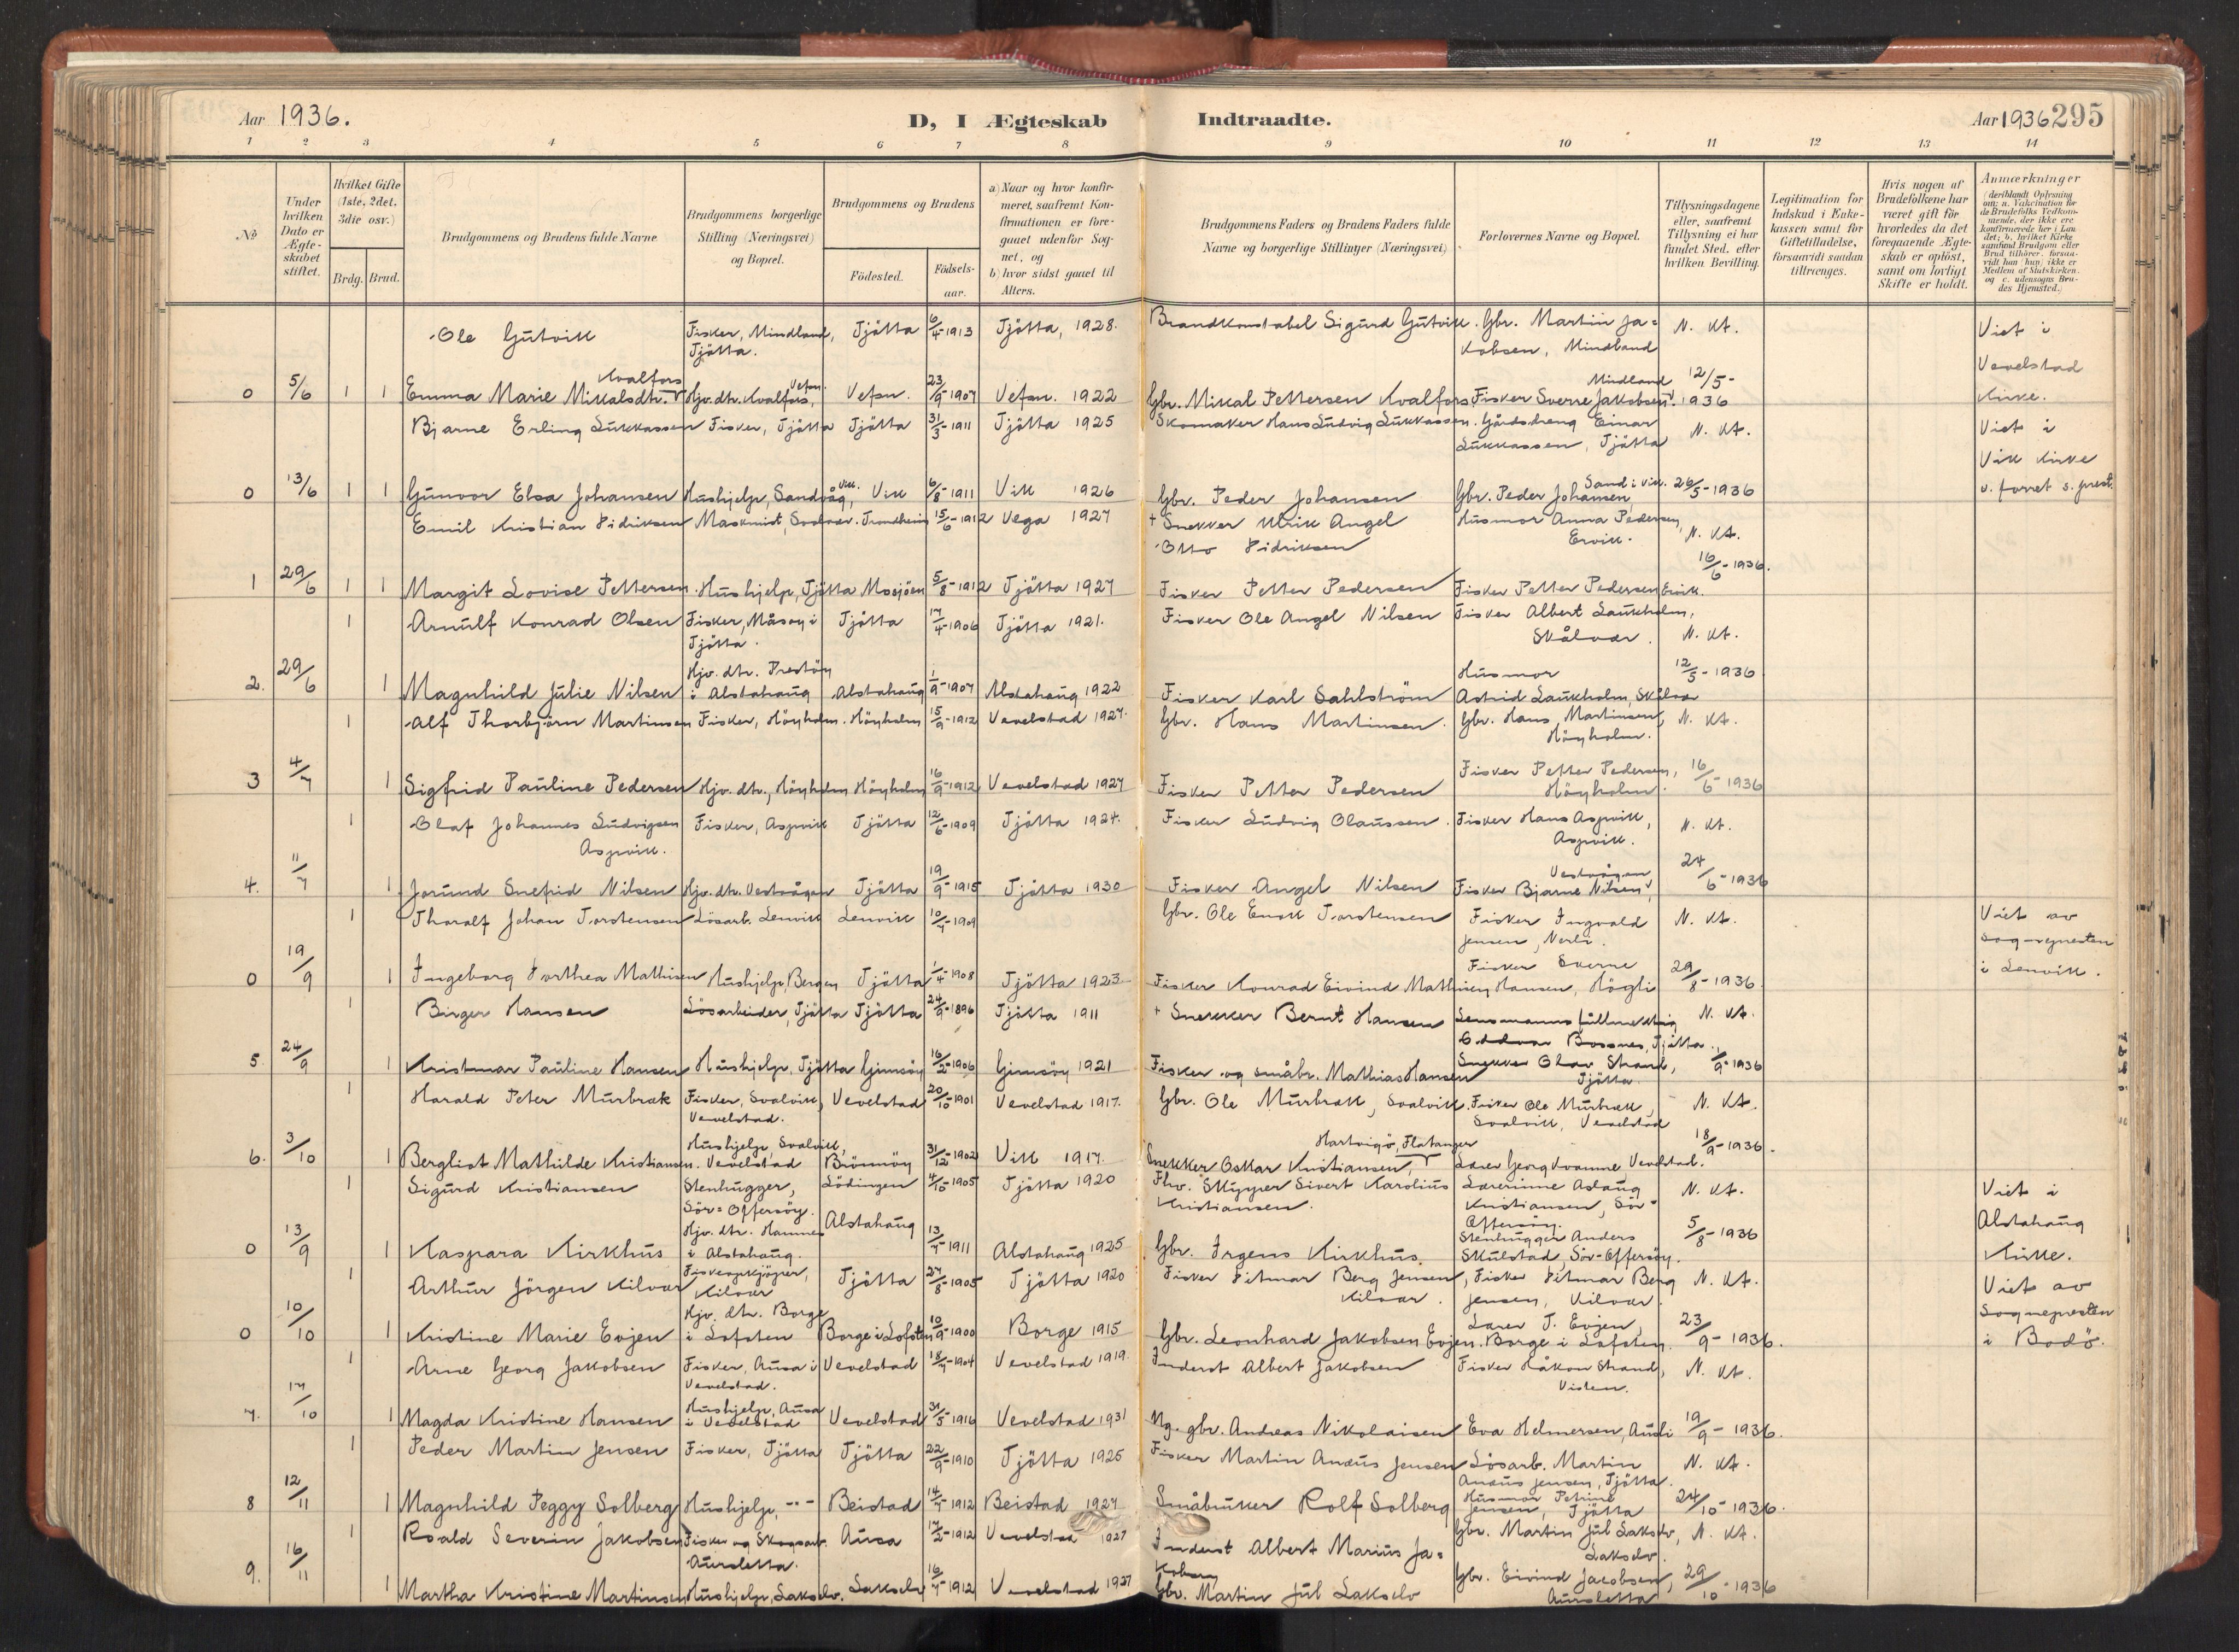 Aar 1936.
D, I Ægteskab Indtraadte.
Aar 1936 295
1 2 3 4 5 6 7 8 9 10 11 12 13 14
№
Under hvilken Dato er Ægteskabet stiftet.
Hvilket Gifte (1ste, 2det, 3die osv.)
Brdg. Brud.
Brudgommens og Brudens fulde Navne
Brudgommens borgerlige Stilling (Næringsvei) og Bopæl.
Brudgommens og Brudens
Födested. Födselsaar.
a) Naar og hvor konfirmeret, saafremt Konfirmationen er foregaaet udenfor Sognet, og
b) hvor sidst gaaet til Alters.
Brudgommens Faders og Brudens Faders fulde Navne og borgerlige Stillinger (Næringsvei)
Forlovernes Navne og Bopæl.
Tillysningsdagene eller, saafremt Tillysning ei har fundet Sted, efter hvilken Bevilling.
Legitimation for Indskud i Enkekassen samt for Giftetilladelse, forsaavidt saadan tiltrænges.
Hvis nogen af Brudefolkene har været gift før hvorledes da det foregaaende Ægteskab er oplöst, samt om lovligt Skifte er holdt.
Anmærkninger
Ole Gutvik Fisker, Mindland, Tjötta. Tjötta 6/4-1913 Tjötta, 1928. Brandkonstabel Sigurd Gutvik. Gbr. Martin Jakobsen, Mindland N. kt. Viet i Vevelstad Kirke.
0 5/6 1 1 Emma Marie Mikalsdtr. Kvalfors Hjv. dtr. Kvalfors, Vefsn. Vefsn. 23/9-1907 Vefsn. 1922 Gbr. Mikal Pettersen Kvalfors Fisker Sverre Jakobsen Mindland 12/5-1936
Bjarne Erling Lukkassen Fisker, Tjötta Tjötta 31/3-1911 Tjötta 1925 Skomaker Hans Ludvig Lukkassen. Gårdsdreng Einar Lukkassen, Tjötta N. kt. Viet i Vik Kirke
0 13/6 1 1 Gunvor Elsa Johansen Hushjelp, Sandvåg, Vik. Vik 6/8-1911 Vik 1926 Gbr. Peder Johansen Gbr. Peder Johansen, Sand i Vik. 26/5-1936
Emil Kristian Didriksen Maskinist, Svolvær. Trondheim 15/6-1912 Vega 1927 + Snekker Ulrik Angel Otto Didriksen Husmor Anna Pedersen, Ervik. N. kt.
1 29/6 1 1 Margit Lovise Pettersen. Hushjelp, Tjötta Mosjöen 5/8-1912 Tjötta 1927 Fisker Petter Pedersen Fisker Petter Pedersen Ervik. 16/6-1936.
1 Arnulf Konrad Olsen Fisker, Måsöy i Tjötta. Tjötta 17/4-1906 Tjötta 1921. Fisker Ole Angel Nilsen Fisker Albert Laukholm, Skålvær. N. kt.
2. 29/6 1 Magnhild Julie Nilsen Hjv. dtr. Prestöy i Alstahaug Alstahaug 1/9-1907 Alstahaug 1922 Fisker Karl Sahlström Husmor Astrid Laukholm, Skålvær 12/5-1936
1 Alf Thorbjörn Martinsen Fisker, Höyholm. Höyholm 15/9-1912 Vevelstad 1927. Gbr. Hans Martinsen. Gbr. Hans Martinsen, Höyholm. N. kt.
3 4/7 1 Sigfrid Pauline Pedersen Hjv. dtr., Höyholm Höyholm 16/9-1912 Vevelstad 1927 Fisker Petter Pedersen Fisker Petter Pedersen, Höyholm. 16/6-1936
1 Olaf Johannes Ludvigsen Aspvik. Fisker, Aspvik Tjötta 12/6-1909 Tjötta 1924. Fisker Ludvig Olaussen. Fisker Hans Aspvik, Aspvik. N. kt.
4. 11/7 1 Jorund Snefrid Nilsen Hjv. dtr. Vestvågen Tjötta 19/9-1915 Tjötta 1930 Fisker Angel Nilsen Fisker Bjarne Nilsen, Vestvågen 24/6-1936
1 Tharalf Johan Torstensen Lösarb. Lenvik Lenvik 10/7-1909 Gbr. Ole Enok Torstensen Fisker Ingvald Jensen, Nerli. N. kt. Viet av sognepresten i Lenvik.
0 19/9 1 Ingeborg Dorthea Mathisen Hushjelp, Bergen Tjötta 1/4-1908 Tjötta 1923 Fisker Konrad Eivind Mathisen Fisker Sverre Hansen, Högli 29/8-1936.
1 Birger Hansen Lösarbeider, Tjötta Tjötta 24/9-1896 Tjötta 1911 + Snekker Bernt Hansen Lensmannsfullmektig Oddvar Bossnes, Tjötta. N. kt.
5. 24/9 1 Kristmar Pauline Hansen Hushjelp, Tjötta Gimsöy 16/2-1906 Gimsöy 1921 Fisker og småbr. Mathias Hansen Snekker Olav Strand, Tjötta. 1/9-1936
1 Harald Peter Murbræk Fisker, Svalvik, Vevelstad. Vevelstad 20/10-1901 Vevelstad 1917. Gbr. Ole Murbræk, Svalvik. Fisker Ole Murbræk, Svalvik, Vevelstad N. kt.
6. 3/10 1 Bergliot Mathilde Kristiansen. Hushjelp, Svalvik, Vevelstad Brönnöy 31/12-1902 Vik 1917. Snekker Oskar Kristiansen, Hartvigö, Flatanger Lærer Georg Kvamme Vevelstad. 18/9-1936.
1 Sigurd Kristiansen Stenhugger, Sör-Offersöy. Lödingen 4/10-1905 Tjötta 1920 Fhv. Skipper Sivert Karolius Kristiansen. Lærerinne Aslaug Kristiansen, Sör-Offersöy. N. kt. Viet i Alstahaug Kirke.
0 13/9 1 Kaspara Kirkhus Hjv. dtr. Hamnes i Alstahaug. Alstahaug 13/7-1911 Alstahaug 1925 Gbr. Irgens Kirkhus. Stenhugger Anders Skulstad, Sör-Offersöy. 5/8-1936
1 Arthur Jörgen Kilvær Fiskeopkjöper, Kilvær Tjötta 27/8-1905 Tjötta 1920 Fisker Ditmar Berg Jensen, Kilvær. Fisker Ditmar Berg Jensen, Kilvær. N. kt. Viet av Sognepresten i Bodö.
0 10/10 1 Kristine Marie Evjen Hjv. dtr. Borge i Lofoten Borge i Lofoten 10/9-1900 Borge 1915 Gbr. Leonhard Jakobsen Evjen. Lærer J. Evjen, Borge i Lofoten. 23/9-1936.
1 Arne Georg Jakobsen Fisker, Ausa i Vevelstad. Vevelstad 18/7-1904 Vevelstad 1919. Inderst Albert Jakobsen Fisker Håkon Strand, Visten. N. kt.
7. 17/10 1 Magda Kristine Hansen Hushjelp, Ausa i Vevelstad Vevelstad 31/5-1916 Vevelstad 1931 Ng. gbr. Andreas Nikolaisen Eva Helmersen, Ausli 19/9-1936.
1 Peder Martin Jensen Fisker, Tjötta Tjötta 22/9-1910 Tjötta 1925 Fisker Martin Andus Jensen Lösarb. Martin Andus Jensen, Tjötta. N. kt.
8 12/11 1 Magnhild Peggy Solberg Hushjelp, -"- Beistad 14/7-1912 Beistad 1927 Småbruker Rolf Solberg Husmor Petrine Jensen, Tjötta 24/10-1936.
1 Roald Severin Jakobsen Fisker og Skogsarb. Aursletta. Ausa 17/2-1912 Vevelstad 1927 Inderst Albert Marius Jakobsen Gbr. Martin Jul Lakselv, Lakselv. N. kt.
9. 16/11 1 Martha Kristine Martinsen Hushjelp, Lakselv. Lakselv 16/7-1912 Vevelstad 1927 Gbr. Martin Jul Lakselv Gbr. Eivind Jacobsen, Aursletta 29/10-1936